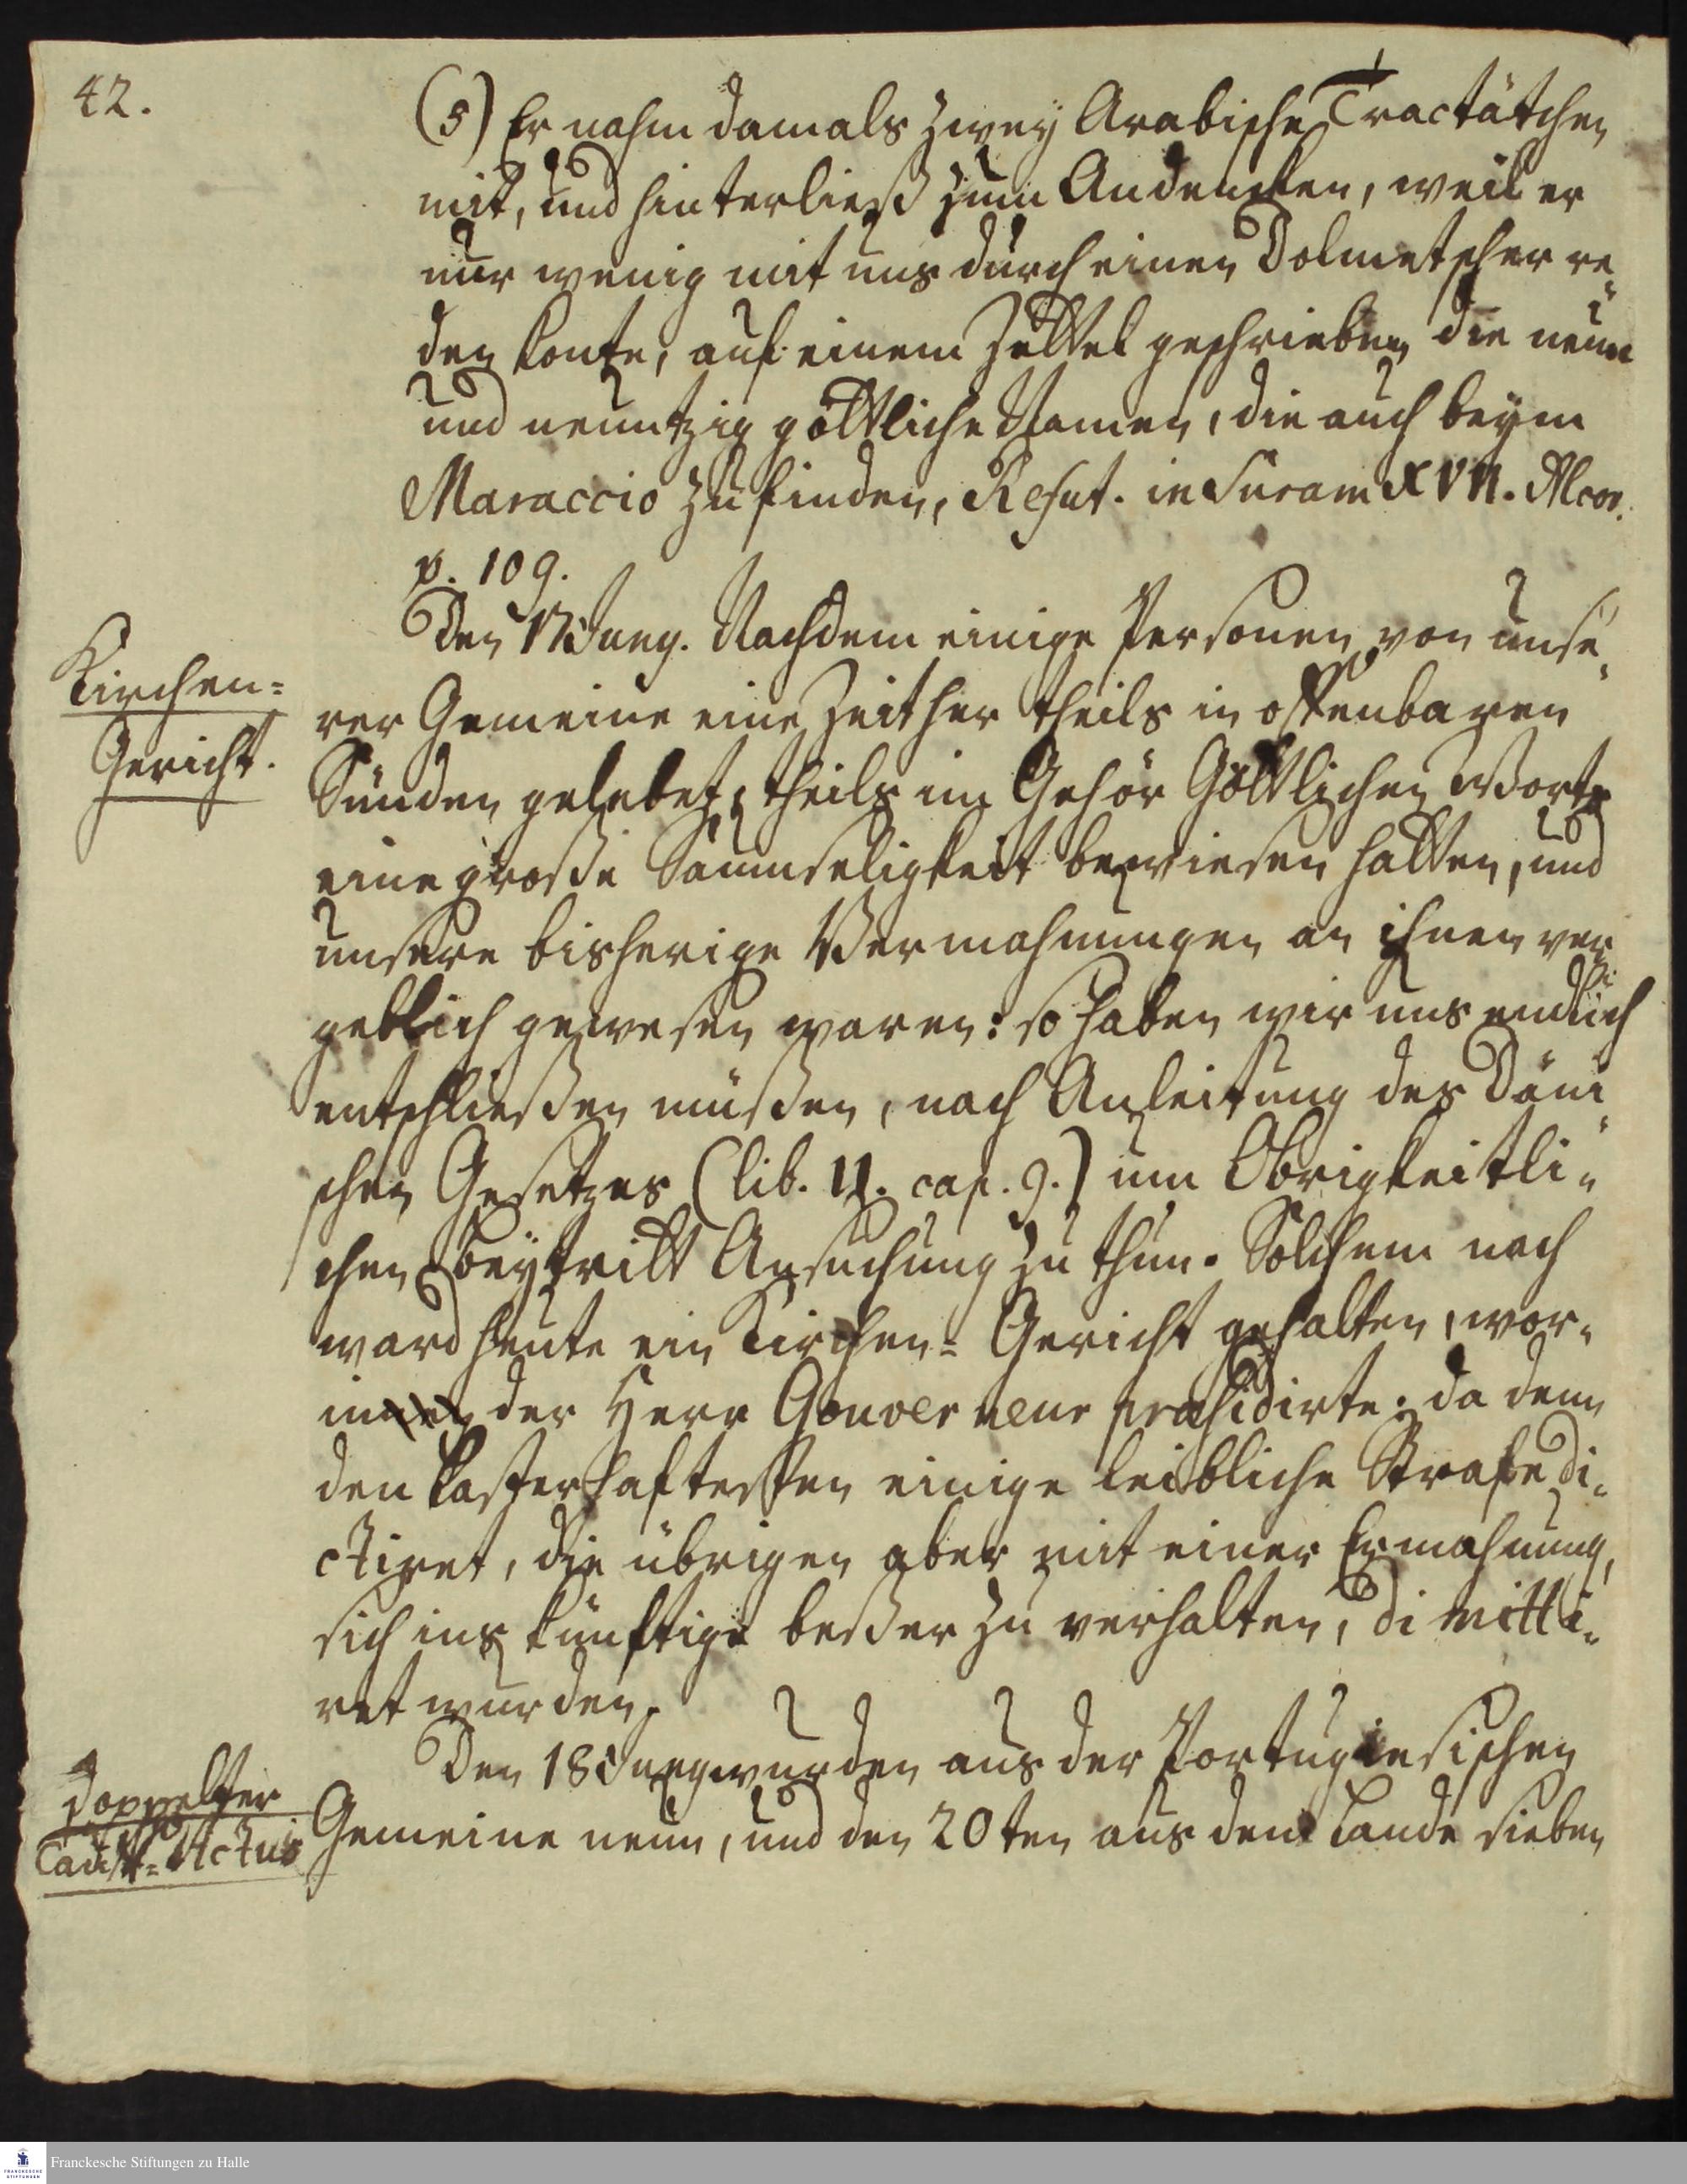 42.
(5) Er nahm damals zwey Arabische Tractätchen
mit, und hinterließ zum Andencken, weil er
nur wenig mit uns durch einen Dolmetscher re„
den konte, auf einem Zettel geschrieben die neun
und neuntzig göttliche Namen, die auch beym
Maraccio zu finden, Refut. in Suram XVII. Alcor.
p. 109.
Kirchen=
Gericht.
Den 17 Juny. Nachdem einige Personen von unse„
rer Gemeine eine Zeit her theils in offenbaren
Sünden gelebet, theils im Gehör Göttlichen Worts
eine große Saumseligkeit bewiesen hatten, und
unsere bisherige Vermahnungen an ihnen ver„
geblich gewesen waren: so haben wir uns endlich
entschließen müßen, nach Anleitung des Däni„
schen Gesetzes (lib. II. cap. 9.) um Obrigkeitli„
chen Beytritt Ansuchung zu thun. Solchem nach
ward heute ein Kirchen= Gericht gehalten, wor„
innen der Herr Gouverneur præsidirte; da denn
den lasterhaftesten einige leibliche Strafe di„
ctiret, die übrigen aber mit einer Ermahnung,
sich ins künftige beßer zu verhalten, dimitti„
ret wurden.
Doppelter
Tauf= Actus
Den 18 Juny wurden aus der Portugiesischen
Gemeine neun, und den 20ten aus dem Lande sieben
Franckesche Stiftungen zu Halle